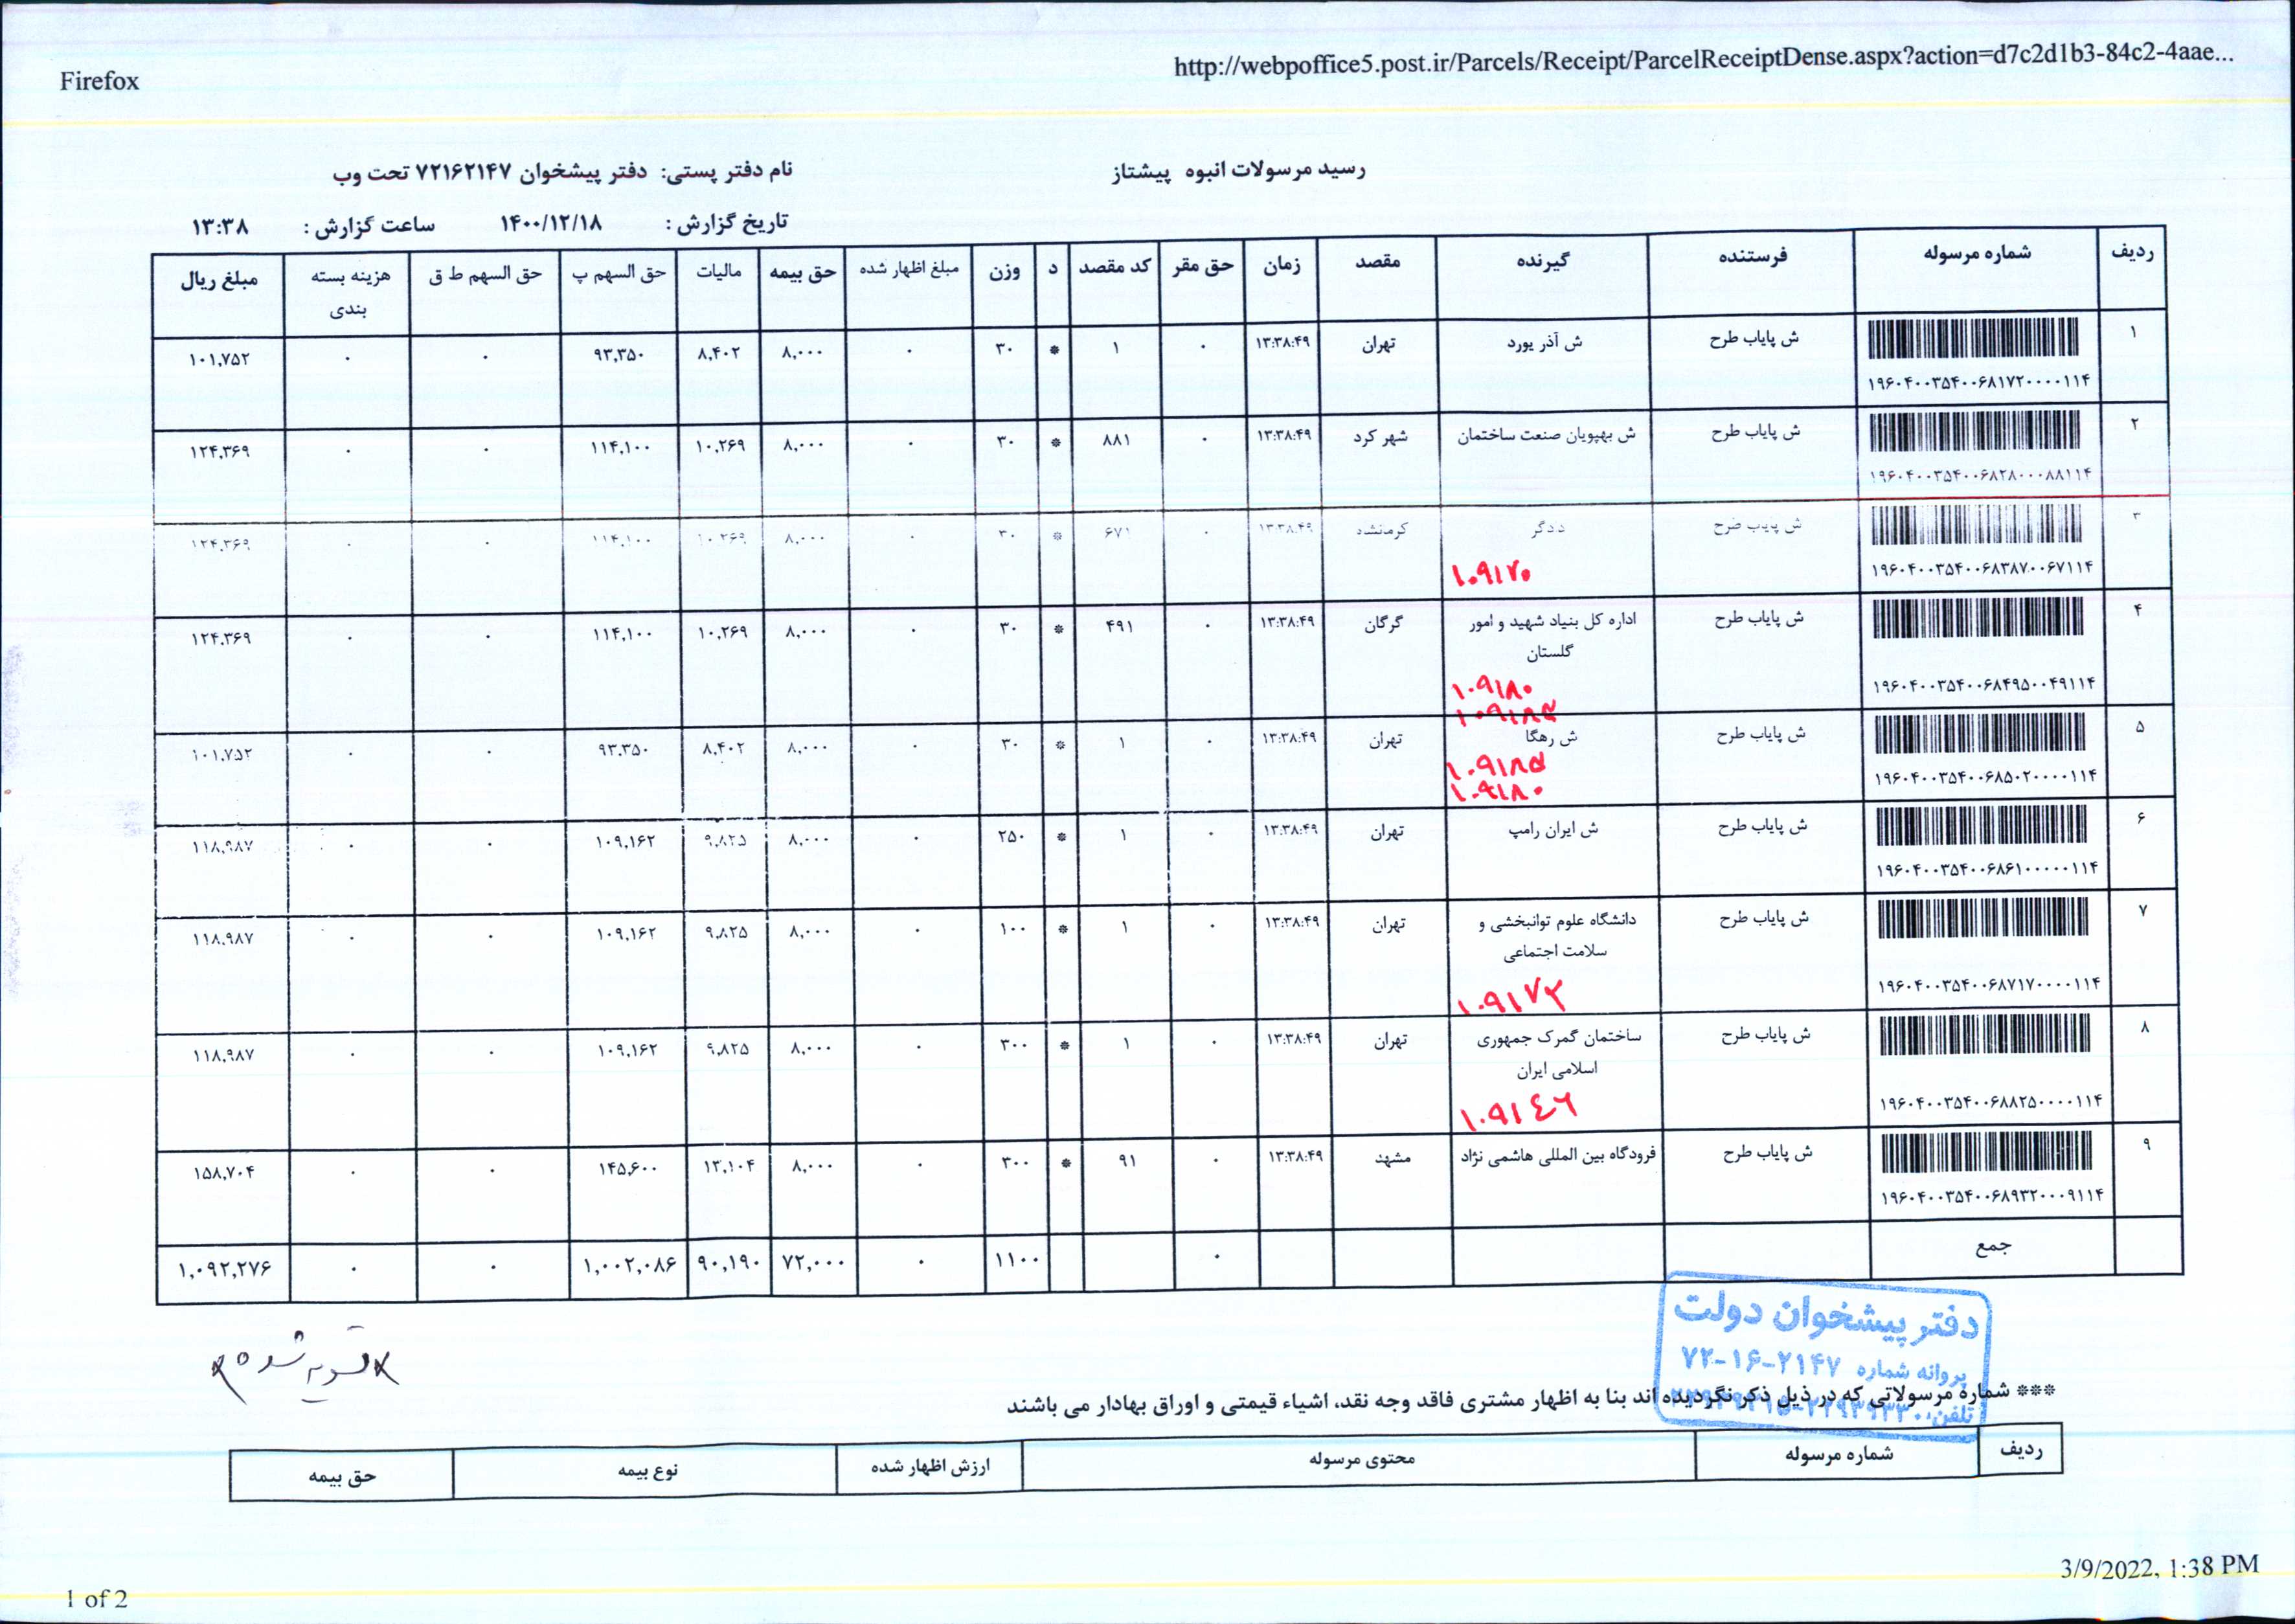 Firefox
http://webpoffice5.post.ir/Parcels/Receipt/ParcelReceiptDense.aspx?action=d7c2d1b3-84c2-4aae...
رسید مرسولات انبوه پیشتاز
نام دفتر پستی: دفتر پیشخوان ۷۲۱۶۲۱۴۷ تحت وب
تاریخ گزارش : ۱۴۰۰/۱۲/۱۸ ساعت گزارش : ۱۳:۳۸
ردیف شماره مرسوله فرستنده گیرنده مقصد زمان حق مقر کد مقصد د وزن مبلغ اظهار شده حق بیمه مالیات حق السهم پ حق السهم ط ق هزینه بسته بندی مبلغ ریال
۱ ش پایاب طرح ش آذر یورد تهران ۱۳:۳۸:۴۹ ۰ ۱ * ۳۰ ۰ ۸,۰۰۰ ۸,۴۰۲ ۹۳,۳۵۰ ۰ ۰ ۱۰۱,۷۵۲
۱۹۶۰۴۰۰۳۵۴۰۰۶۸۱۷۲۰۰۰۰۱۱۴
۲ ش پایاب طرح ش بهپویان صنعت ساختمان شهر کرد ۱۳:۳۸:۴۹ ۰ ۸۸۱ * ۳۰ ۰ ۸,۰۰۰ ۱۰,۲۶۹ ۱۱۴,۱۰۰ ۰ ۰ ۱۲۴,۳۶۹
۱۹۶۰۴۰۰۳۵۴۰۰۶۸۲۸۰۰۰۸۸۱۱۴
۳ ش پایاب طرح دادگر کرمانشاه ۱۳:۳۸:۴۹ ۰ ۶۷۱ * ۳۰ ۰ ۸,۰۰۰ ۱۰,۲۶۹ ۱۱۴,۱۰۰ ۰ ۰ ۱۲۴,۳۶۹
۱۹۶۰۴۰۰۳۵۴۰۰۶۸۳۸۷۰۰۶۷۱۱۴
۱۰۹۱۷۰
۴ ش پایاب طرح اداره کل بنیاد شهید و امور گرگان ۱۳:۳۸:۴۹ ۰ ۴۹۱ * ۳۰ ۰ ۸,۰۰۰ ۱۰,۲۶۹ ۱۱۴,۱۰۰ ۰ ۰ ۱۲۴,۳۶۹
گلستان
۱۹۶۰۴۰۰۳۵۴۰۰۶۸۴۹۵۰۰۴۹۱۱۴
۱۰۹۱۸۰
۱۰۹۱۸۵
۵ ش پایاب طرح ش رهگا تهران ۱۳:۳۸:۴۹ ۰ ۱ * ۳۰ ۰ ۸,۰۰۰ ۸,۴۰۲ ۹۳,۳۵۰ ۰ ۰ ۱۰۱,۷۵۲
۱۹۶۰۴۰۰۳۵۴۰۰۶۸۵۰۲۰۰۰۰۱۱۴
۱۰۹۱۸۵
۱۰۹۱۸۰
۶ ش پایاب طرح ش ایران رامپ تهران ۱۳:۳۸:۴۹ ۰ ۱ * ۲۵۰ ۰ ۸,۰۰۰ ۹,۸۲۵ ۱۰۹,۱۶۲ ۰ ۰ ۱۱۸,۹۸۷
۱۹۶۰۴۰۰۳۵۴۰۰۶۸۶۱۰۰۰۰۰۱۱۴
۷ ش پایاب طرح دانشگاه علوم توانبخشی و تهران ۱۳:۳۸:۴۹ ۰ ۱ * ۱۰۰ ۰ ۸,۰۰۰ ۹,۸۲۵ ۱۰۹,۱۶۲ ۰ ۰ ۱۱۸,۹۸۷
سلامت اجتماعی
۱۹۶۰۴۰۰۳۵۴۰۰۶۸۷۱۷۰۰۰۰۱۱۴
۱۰۹۱۷۲
۸ ش پایاب طرح ساختمان گمرک جمهوری تهران ۱۳:۳۸:۴۹ ۰ ۱ * ۳۰۰ ۰ ۸,۰۰۰ ۹,۸۲۵ ۱۰۹,۱۶۲ ۰ ۰ ۱۱۸,۹۸۷
اسلامی ایران
۱۹۶۰۴۰۰۳۵۴۰۰۶۸۸۲۵۰۰۰۰۱۱۴
۱۰۹۱٤٦
۹ ش پایاب طرح فرودگاه بین المللی هاشمی نژاد مشهد ۱۳:۳۸:۴۹ ۰ ۹۱ * ۳۰۰ ۰ ۸,۰۰۰ ۱۳,۱۰۴ ۱۴۵,۶۰۰ ۰ ۰ ۱۵۸,۷۰۴
۱۹۶۰۴۰۰۳۵۴۰۰۶۸۹۳۲۰۰۰۹۱۱۴
جمع ۰ ۱۱۰۰ ۰ ۷۲,۰۰۰ ۹۰,۱۹۰ ۱,۰۰۲,۰۸۶ ۰ ۰ ۱,۰۹۲,۲۷۶
دفتر پیشخوان دولت
پروانه شماره ۷۲-۱۶-۲۱۴۷
تسویه شد
*** شماره مرسولاتی که در ذیل ذکر نگردیده اند بنا به اظهار مشتری فاقد وجه نقد، اشیاء قیمتی و اوراق بهادار می باشند
تلفن:
ردیف شماره مرسوله محتوی مرسوله ارزش اظهار شده نوع بیمه حق بیمه
3/9/2022, 1:38 PM
1 of 2